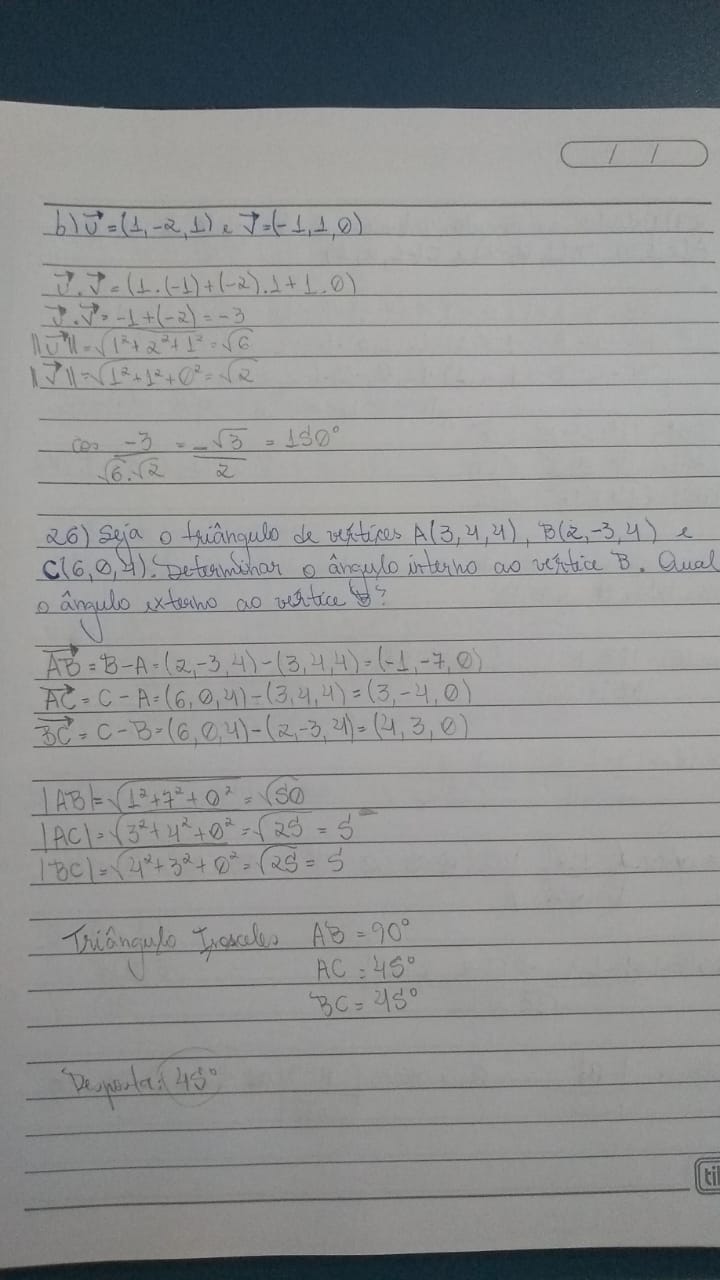 b) u⃗ = (1, -2, 1) e v⃗ = (-1, 1, 0)
u⃗ . v⃗ = (1 . (-1) + (-2) . 1 + 1 . 0)
u⃗ . v⃗ = -1 + (-2) = -3
||u⃗|| = √1² + 2² + 1² = √6
||v⃗|| = √1² + 1² + 0² = √2
cos -3/√6.√2 = -√3/2 = 150°
26) Seja o triângulo de vértices A(3,4,4), B(2,-3,4) e
C(6,0,4). Determinar o ângulo interno ao vértice B. Qual
o ângulo externo ao vértice B?
AB = B - A = (2,-3,4) - (3,4,4) = (-1,-7,0)
AC = C - A = (6,0,4) - (3,4,4) = (3,-4,0)
BC = C - B = (6,0,4) - (2,-3,4) = (4,3,0)
|AB| = √1² + 7² + 0² = √50
|AC| = √3² + 4² + 0² = √25 = 5
|BC| = √4² + 3² + 0² = √25 = 5
Triângulo Isosceles AB = 90°
AC = 45°
BC = 45°
Resposta: 45°
til